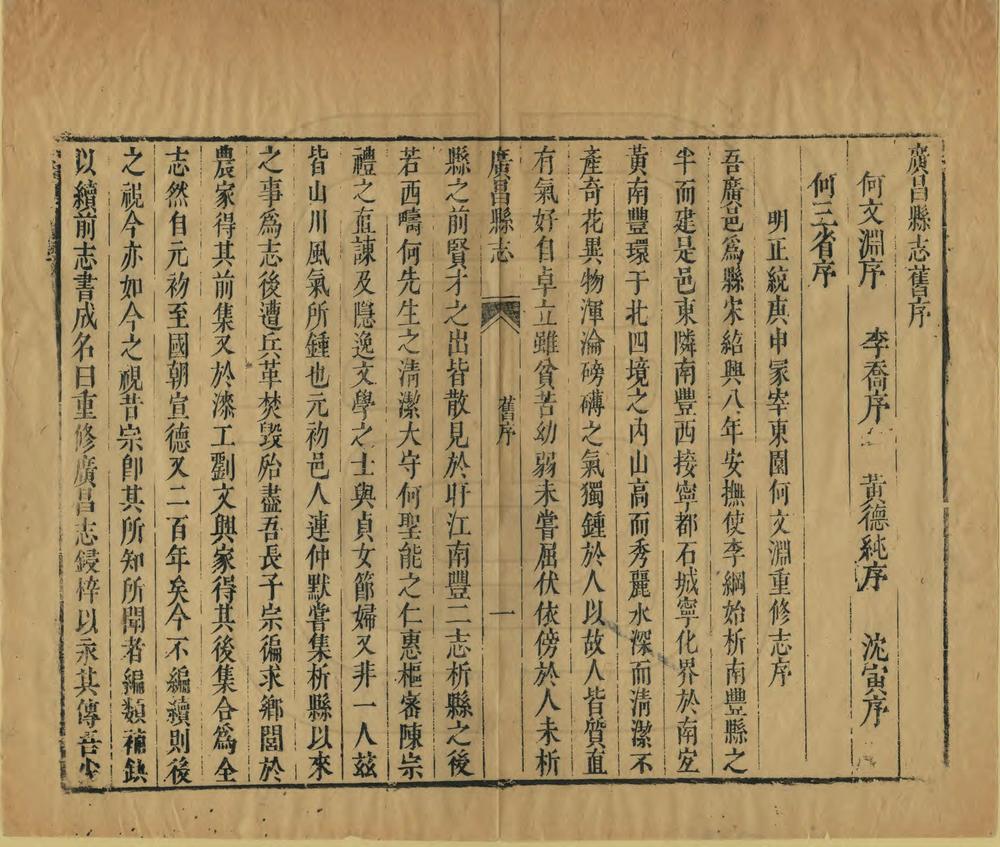 廣昌縣志舊序
何文淵序 李喬序 黃德純序 沈寅序
何三省序
明正統庚申冢宰東園何文淵重修志序
吾廣邑爲縣宋紹興八年安撫使李綱始析南豐縣之
半而建是邑東隣南豐西接寧都石城寧化界於南宜
黃南豐環于北四境之內山高而秀麗水深而清潔不
產奇花異物渾淪磅礡之氣獨鍾於人以故人皆質直
有氣好自卓立雖貧苦幼弱未嘗屈伏依傍於人未析
廣昌縣志
舊序
一
縣之前賢才之出皆散見於旴江南豐二志析縣之後
若西疇何先生之清潔大守何聖能之仁惠樞審陳宗
禮之直諫及隱逸文學之士與貞女節婦又非一人茲
皆山川風氣所鍾也元初邑人連仲默嘗集析縣以來
之事爲志後遭兵革焚毀殆盡吾長子宗徧求鄉閭於
農家得其前集又於漆工劉文興家得其後集合爲全
志然自元初至國朝宣德又二百年矣今不編續則後
之視今亦如今之視昔宗卽其所知所聞者編類補缺
以續前志書成名曰重修廣昌志鋟梓以永其傳吾少